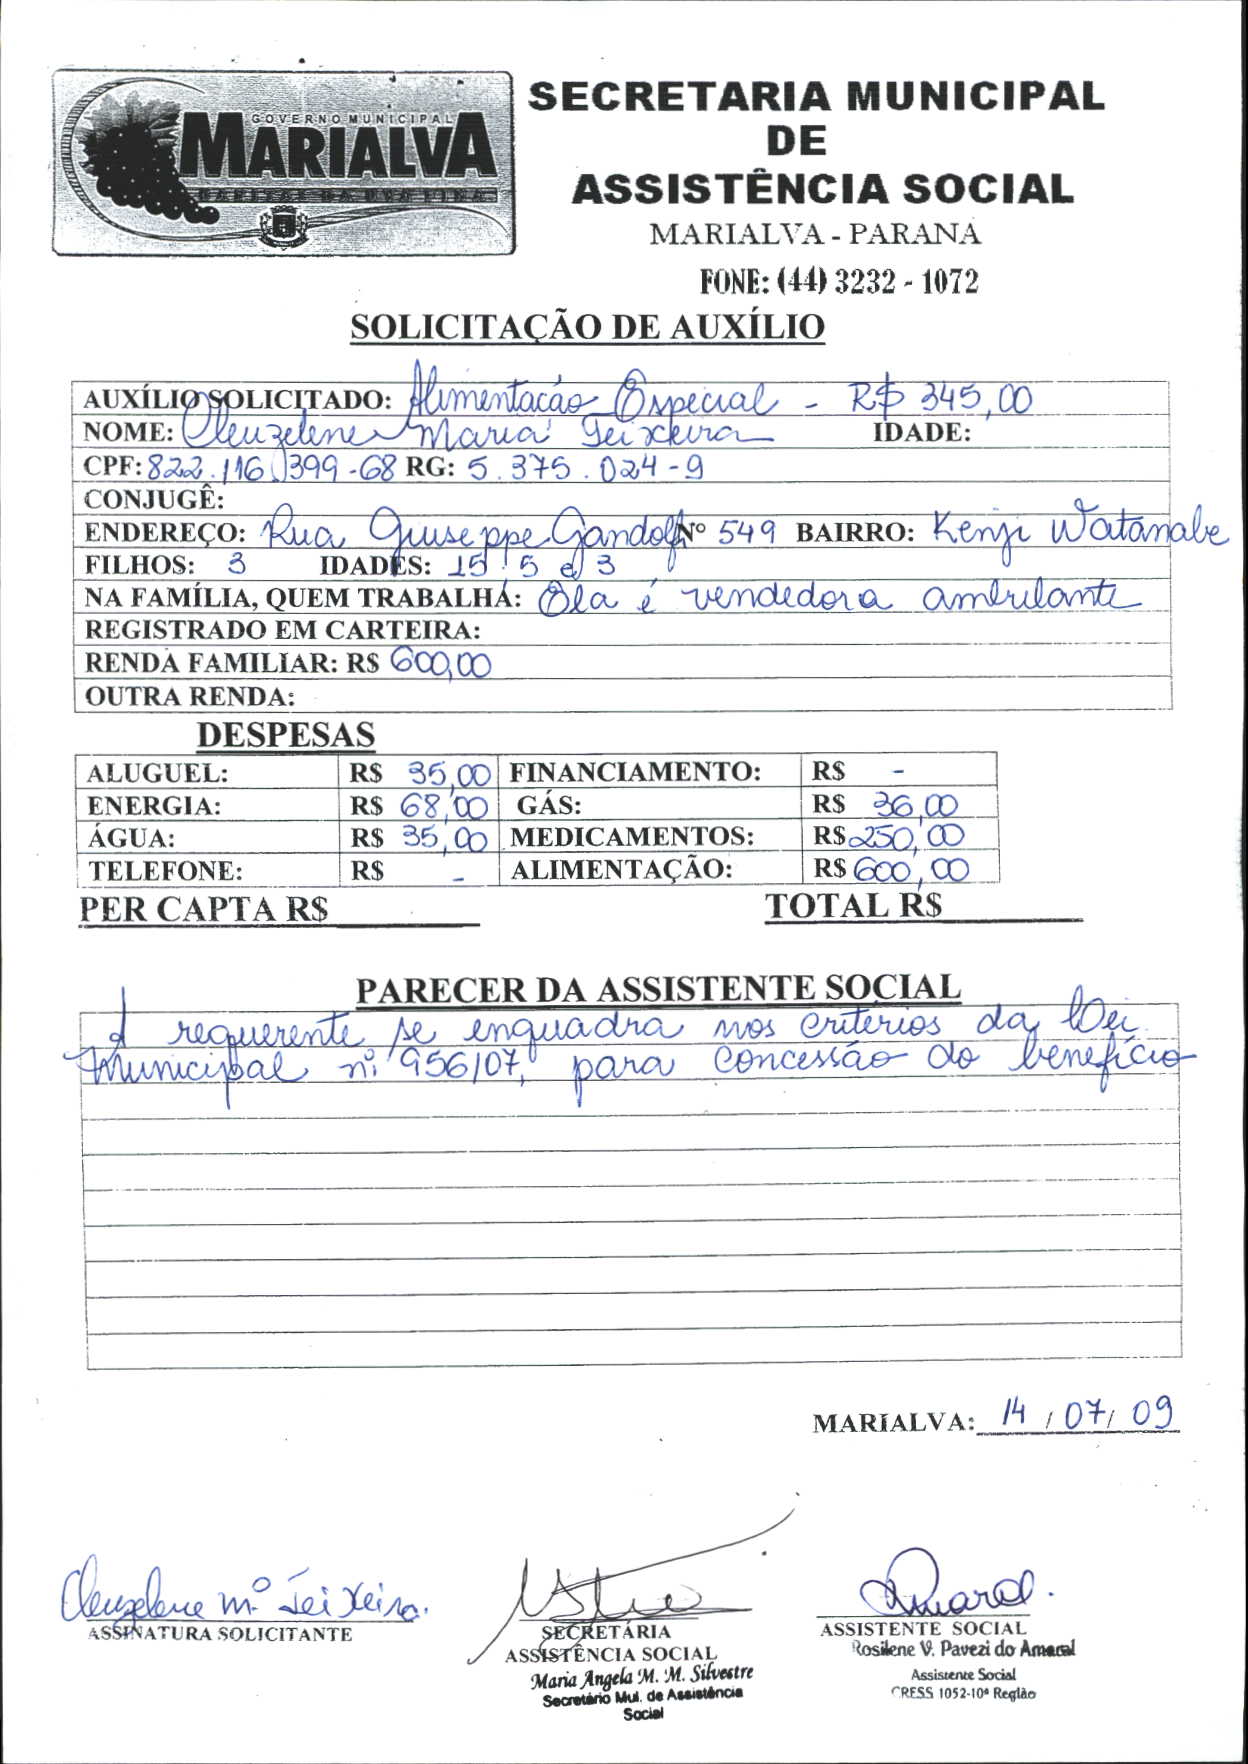 GOVERNO MUNICIPAL
MARIALVA
SECRETARIA MUNICIPAL
DE
ASSISTÊNCIA SOCIAL
MARIALVA - PARANA
FONE: (44) 3232 - 1072
SOLICITAÇÃO DE AUXÍLIO
AUXÍLIO SOLICITADO: Alimentacão Especial - R$ 345,00
NOME: Cleuzelene Maria Teixeira IDADE:
CPF: 822.116.399-68 RG: 5.375.024-9
CONJUGÊ:
ENDEREÇO: Rua Giuseppe Gandolfi Nº 549 BAIRRO: Kenji Watanabe
FILHOS: 3 IDADES: 15, 5 e 3
NA FAMÍLIA, QUEM TRABALHA: Ela é vendedora ambulante
REGISTRADO EM CARTEIRA:
RENDA FAMILIAR: R$ 600,00
OUTRA RENDA:
DESPESAS
ALUGUEL: R$ 35,00 FINANCIAMENTO: R$ -
ENERGIA: R$ 68,00 GÁS: R$ 36,00
ÁGUA: R$ 35,00 MEDICAMENTOS: R$ 250,00
TELEFONE: R$ - ALIMENTAÇÃO: R$ 600,00
PER CAPTA R$ TOTAL R$
PARECER DA ASSISTENTE SOCIAL
A requerente se enquadra nos critérios da Lei
Municipal nº 956/07, para concessão do benefício
MARIALVA: 14 / 07 / 09
Cleuzelene Mª Teixeira.
ASSINATURA SOLICITANTE
SECRETÁRIA
ASSISTÊNCIA SOCIAL
Maria Angela M. M. Silvestre
Secretário Mul. de Assistência
Social
Amaral.
ASSISTENTE SOCIAL
Rosilene V. Pavezi do Amaral
Assistente Social
CRESS 1052-10ª Região